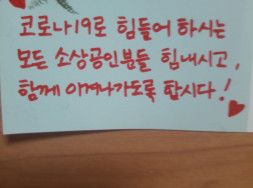 코로나19로 힘들어 하시는
모든 소상공인분들 힘내시고,
함께 이겨나가도록 합시다!